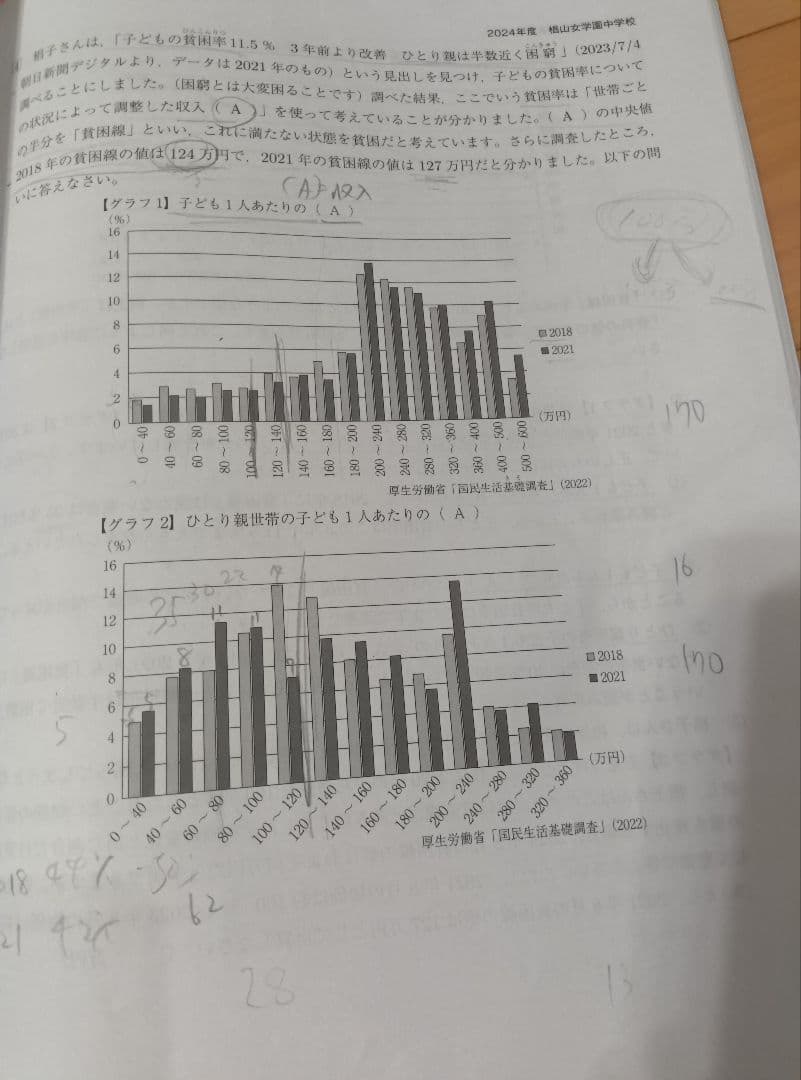 2024年度 椙山女学園中学校
椙子さんは，「子どもの貧困率11.5％ 3年前より改善 ひとり親は半数近く困窮」(2023/7/4
朝日新聞デジタルより，データは2021年のもの）という見出しを見つけ，子どもの貧困率について
調べることにしました。（困窮とは大変困ることです）調べた結果，ここでいう貧困率は「世帯ごと
の状況によって調整した収入（ A ）」を使って考えていることが分かりました。（ A ）の中央値
の半分を「貧困線」といい，これに満たない状態を貧困だと考えています。さらに調査したところ，
2018年の貧困線の値は124万円で，2021年の貧困線の値は127万円だと分かりました。以下の問
いに答えなさい。
(A)=収入
【グラフ1】子ども1人あたりの（ A ）
(％)
16
14
12
10
8
6
4
2
0
2018
2021
(万円)
0～40
40～60
60～80
80～100
100～120
120～140
140～160
160～180
180～200
200～240
240～280
280～320
320～360
360～400
400～500
500～600
170
厚生労働省「国民生活基礎調査」(2022)
【グラフ2】ひとり親世帯の子ども1人あたりの（ A ）
(％)
16
14
12
10
8
6
4
2
0
35
30
22
11
8
11
5
5
16
170
2018
2021
(万円)
0～40
40～60
60～80
80～100
100～120
120～140
140～160
160～180
180～200
200～240
240～280
280～320
320～360
厚生労働省「国民生活基礎調査」(2022)
018 44%
50%
21 42%
62
28
13